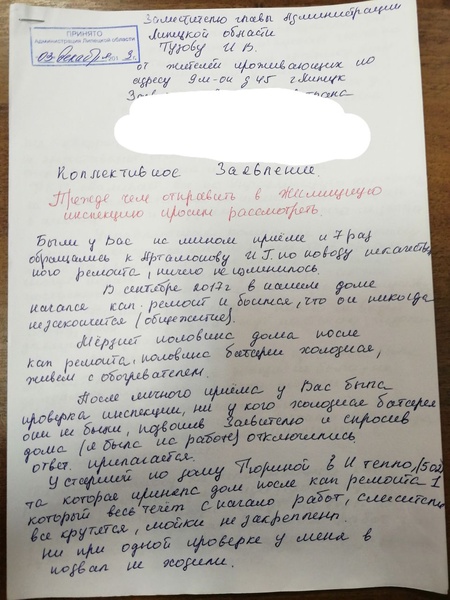 Заместителю главы Администрации
Липецкой области
Тузову И В.
от жителей проживающих по
адресу 9 м-он д 45 г Липецк
ПРИНЯТО
Администрация Липецкой области
03 декабря 201 9 г.
Коллективное Заявление.
Прежде чем отправить в Жилищную
инспекцию просим рассмотреть.
Были у Вас на личном приёме и 7 раз
обращались к Артамонову И Г. по поводу некачествен
ного ремонта, ничего не изменилось.
В сентябре 2017г в нашем доме
начался кап. ремонт и боимся, что он никогда
не закончится (общежитие).
Мёрзнет половина дома после
кап ремонта, половина батареи холодная,
живем с обогревателем.
После личного приёма у Вас была
проверка инспекции, ни у кого холодная батарея
они не были, позвонив Заявителю и спросив
дома (я была на работе) отключились.
ответ. прилагается.
У старшей по дому Тюриной В И тепло, (502)
та которая приняла дом после кап ремонта 1
который весь течёт с начало работ, смесители
все крутятся, мойки не закреплены.
Ни при одной проверке у меня в
подвал не ходили.